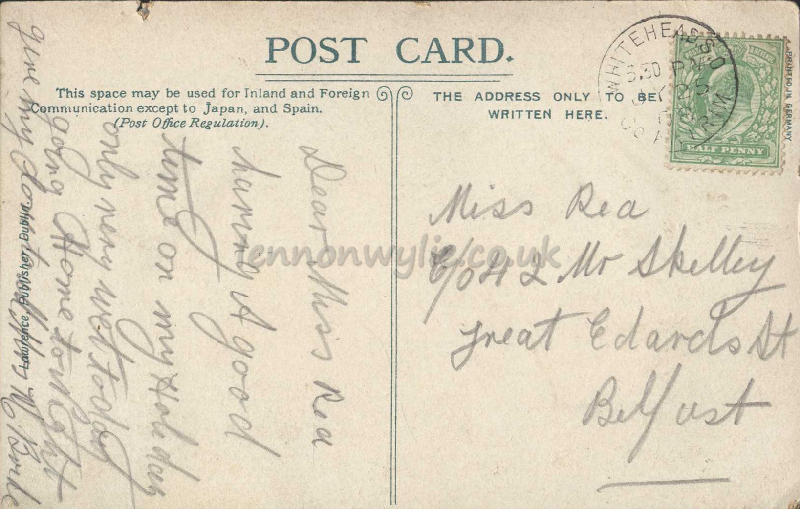 POST CARD.
This space may be used for Inland and Foreign
Communication except to Japan, and Spain.
(Post Office Regulation).
THE ADDRESS ONLY TO BE
WRITTEN HERE.
WHITEHEAD S.O
3.30 P
CO ANTRIM
HALF PENNY
PRINTED IN GERMANY
Miss Rea
C/o 42 Mr Skelley
Great Edards St
Belfast
Dear Miss Rea
having A good
time on my Holiday
only very wet today
going Home tonight
give my love to
Lawrence, Publisher, Dublin.
lennonwylie.co.uk